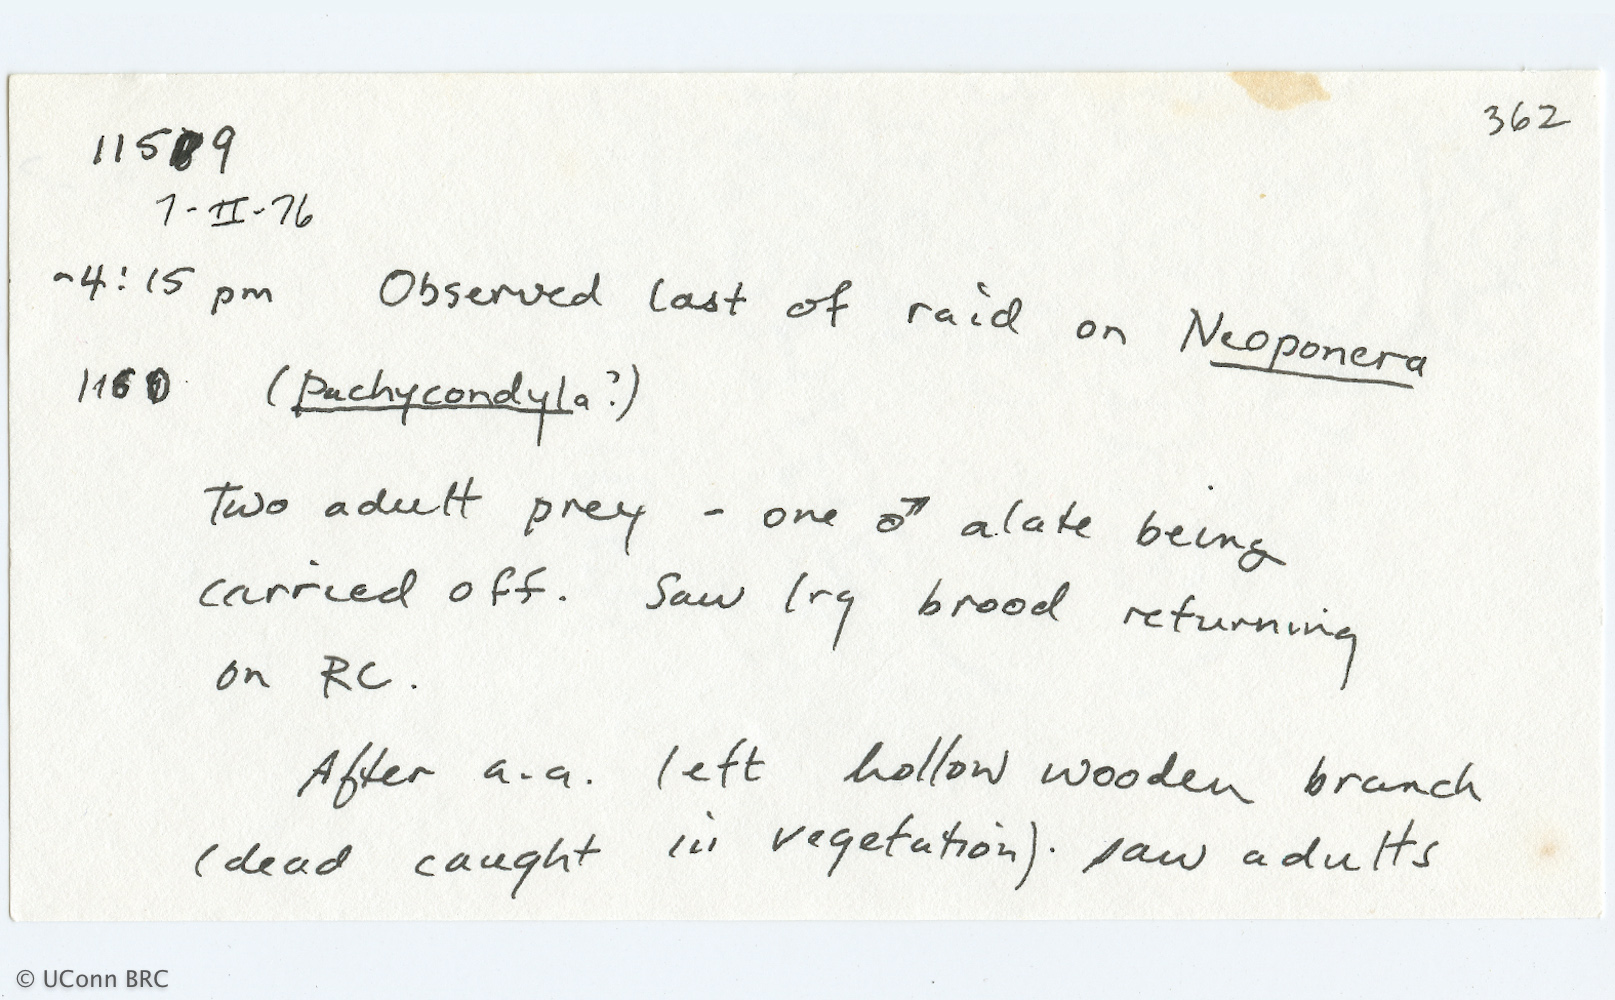 362
9
7-II-76
~4:15 pm Observed last of raid on Neoponera
(Pachycondyla?)
Two adult prey - one ♂ alate being
carried off. Saw lrg brood returning
on RC.
After a.a. left hollow wooden branch
(dead caught in vegetation). saw adults
© UConn BRC